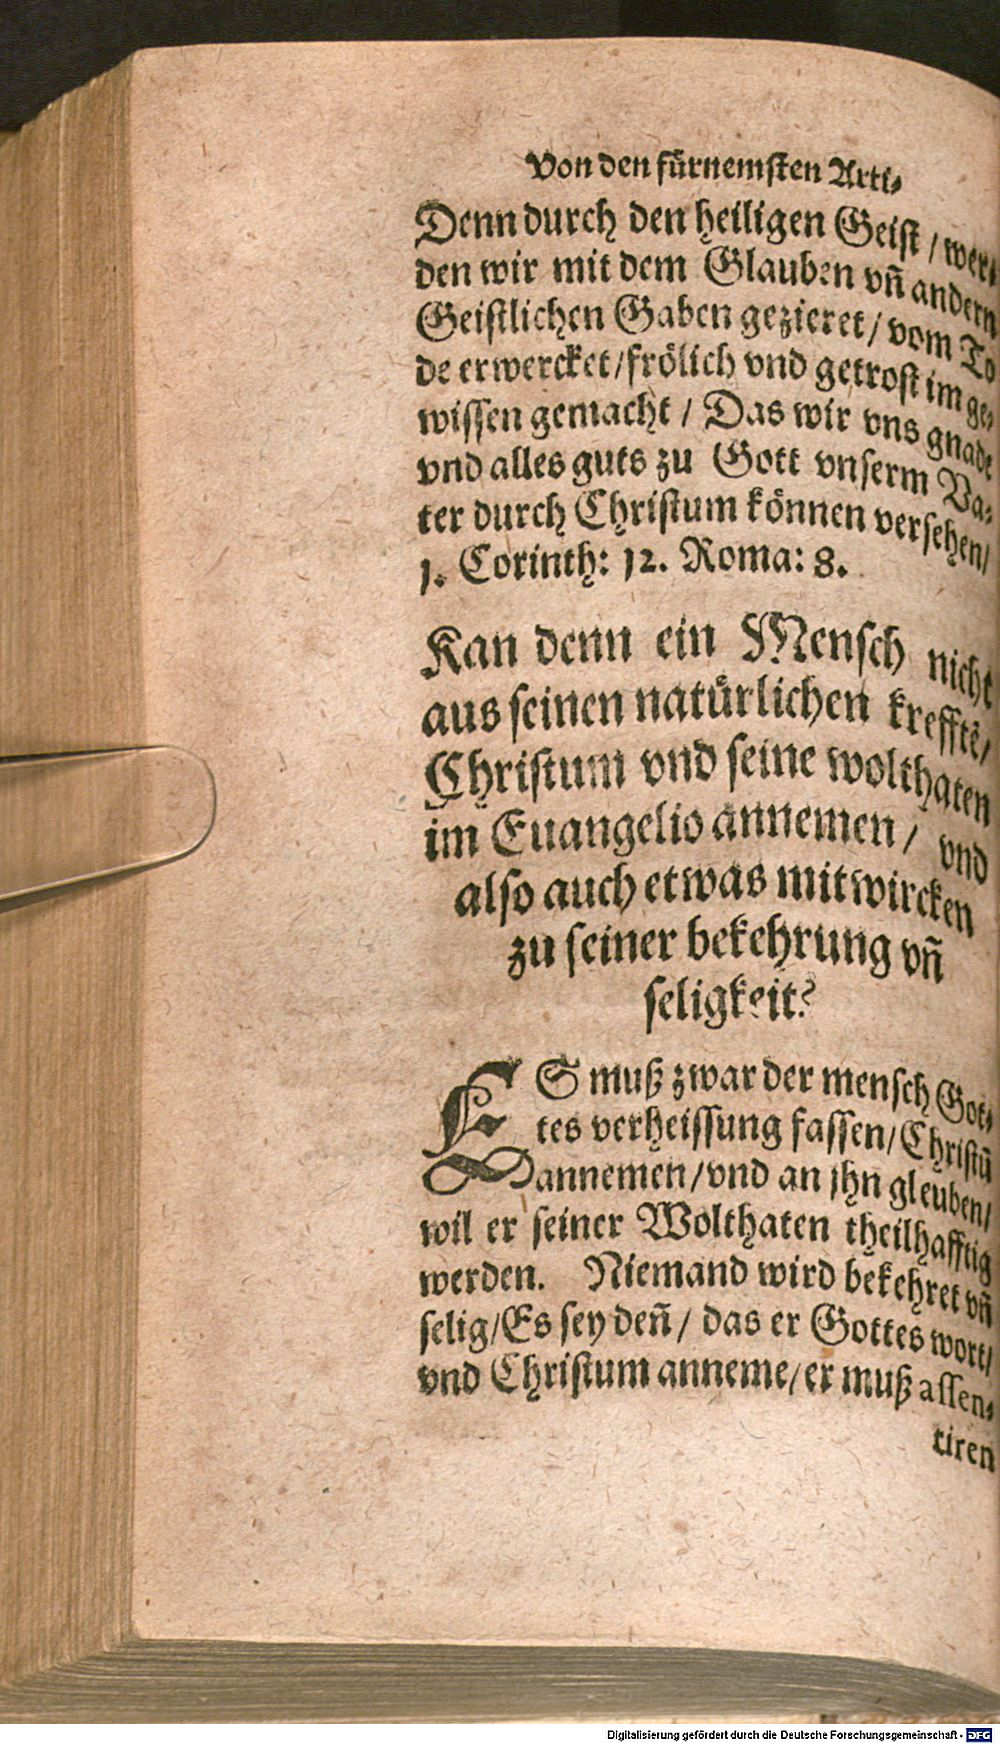 Von den fürnemſten Arti⸗
Denn durch den heiligen Geiſt / wer⸗
den wir mit dem Glauben vñ andern
Geiſtlichen Gaben gezieret / vom To
de erwercket / frölich vnd getroſt im ge⸗
wiſſen gemacht / Das wir vns gnade
vnd alles guts zu Gott vnſerm Va⸗
ter durch Chriſtum können verſehen /
1. Corinth: 12. Roma: 8.
Kan denn ein Menſch nicht
aus ſeinen natürlichen krefftē /
Chriſtum vnd ſeine wolthaten
im Euangelio annemen / vnd
alſo auch etwas mitwircken
zu ſeiner bekehrung vñ
ſeligkeit?
ES muß zwar der menſch Got⸗
tes verheiſſung faſſen / Chriſtū
annemen / vnd an jhn gleuben /
wil er ſeiner Wolthaten theilhafftig
werden. Niemand wird bekehret vñ
ſelig / Es ſey deñ / das er Gottes wort /
vnd Chriſtum anneme / er muß aſſen⸗
tiren
Digitalisierung gefördert durch die Deutsche Forschungsgemeinschaft - DFG